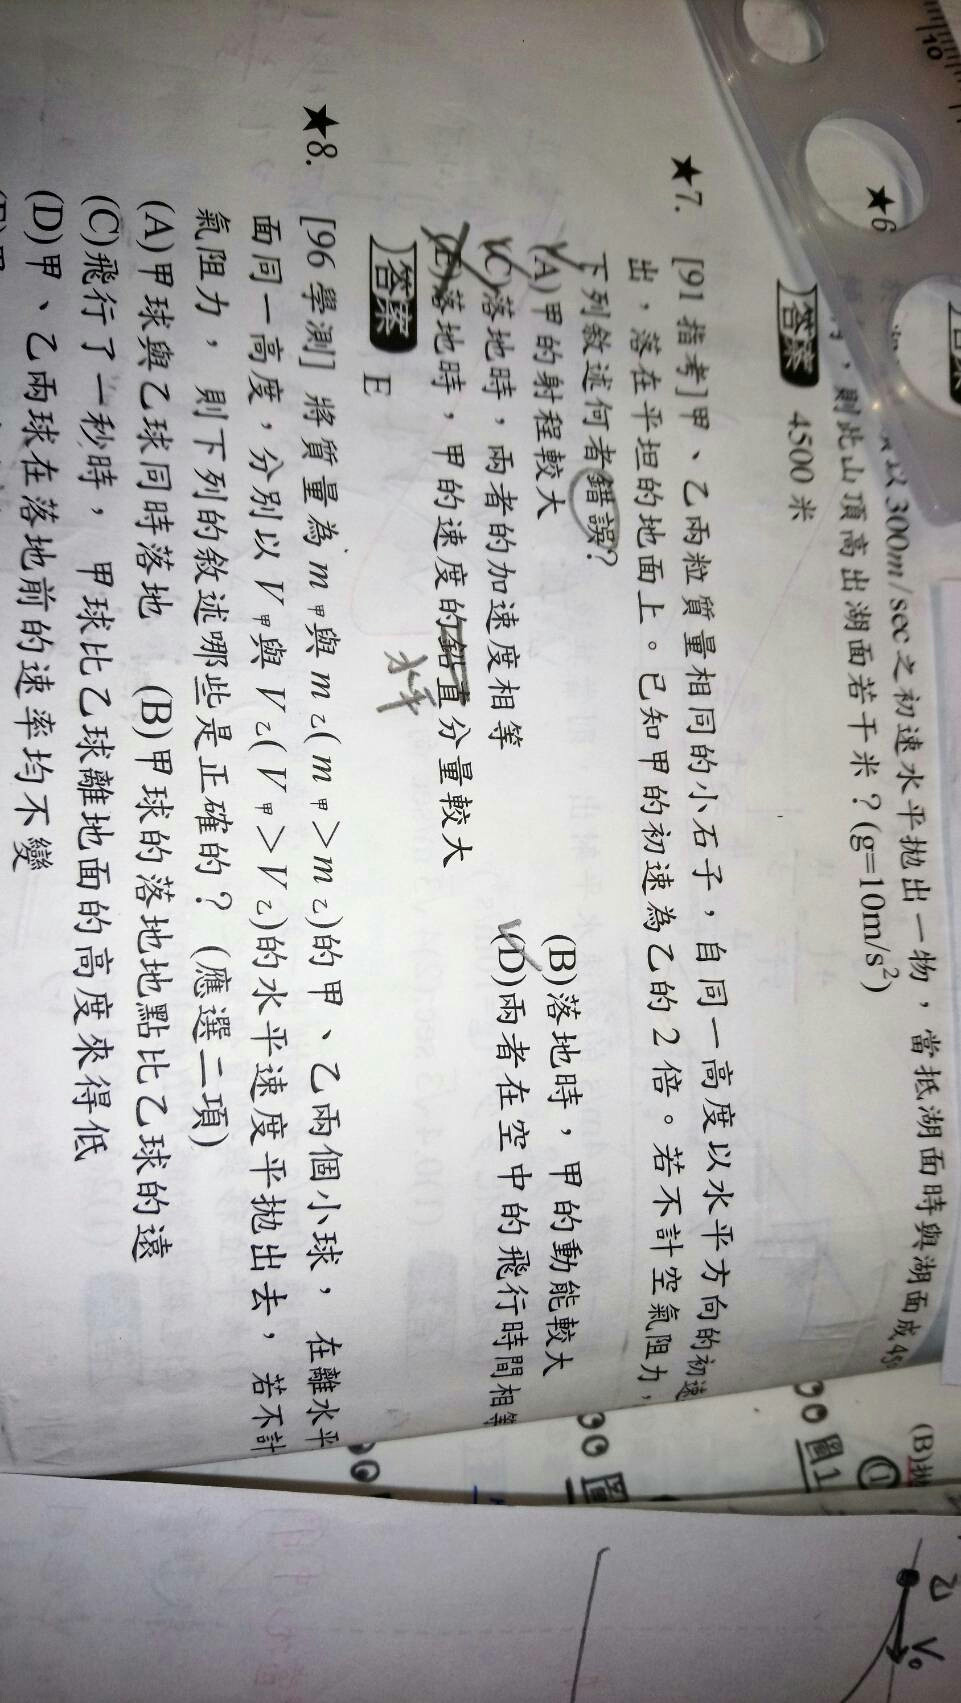 ★6
以300m/sec之初速水平拋出一物，當抵湖面時與湖面成45
，則此山頂高出湖面若干米？(g=10m/s²)
答案 4500 米
★7. [91 指考]甲、乙兩粒質量相同的小石子，自同一高度以水平方向的初速
出，落在平坦的地面上。已知甲的初速為乙的2倍。若不計空氣阻力，
下列敘述何者錯誤?
(A)甲的射程較大 (B)落地時，甲的動能較大
(C)落地時，兩者的加速度相等 (D)兩者在空中的飛行時間相等
(E)落地時，甲的速度的鉛直分量較大
水平
答案 E
★8. [96 學測] 將質量為 m甲與 m乙(m甲＞m乙)的甲、乙兩個小球，在離水平
面同一高度，分別以 V甲與 V乙(V甲＞V乙)的水平速度平拋出去，若不計
氣阻力，則下列的敘述哪些是正確的？(應選二項)
(A)甲球與乙球同時落地 (B)甲球的落地地點比乙球的遠
(C)飛行了一秒時，甲球比乙球離地面的高度來得低
(D)甲、乙兩球在落地前的速率均不變
(B)拋
①
圖1
圖
乙
V₀
10